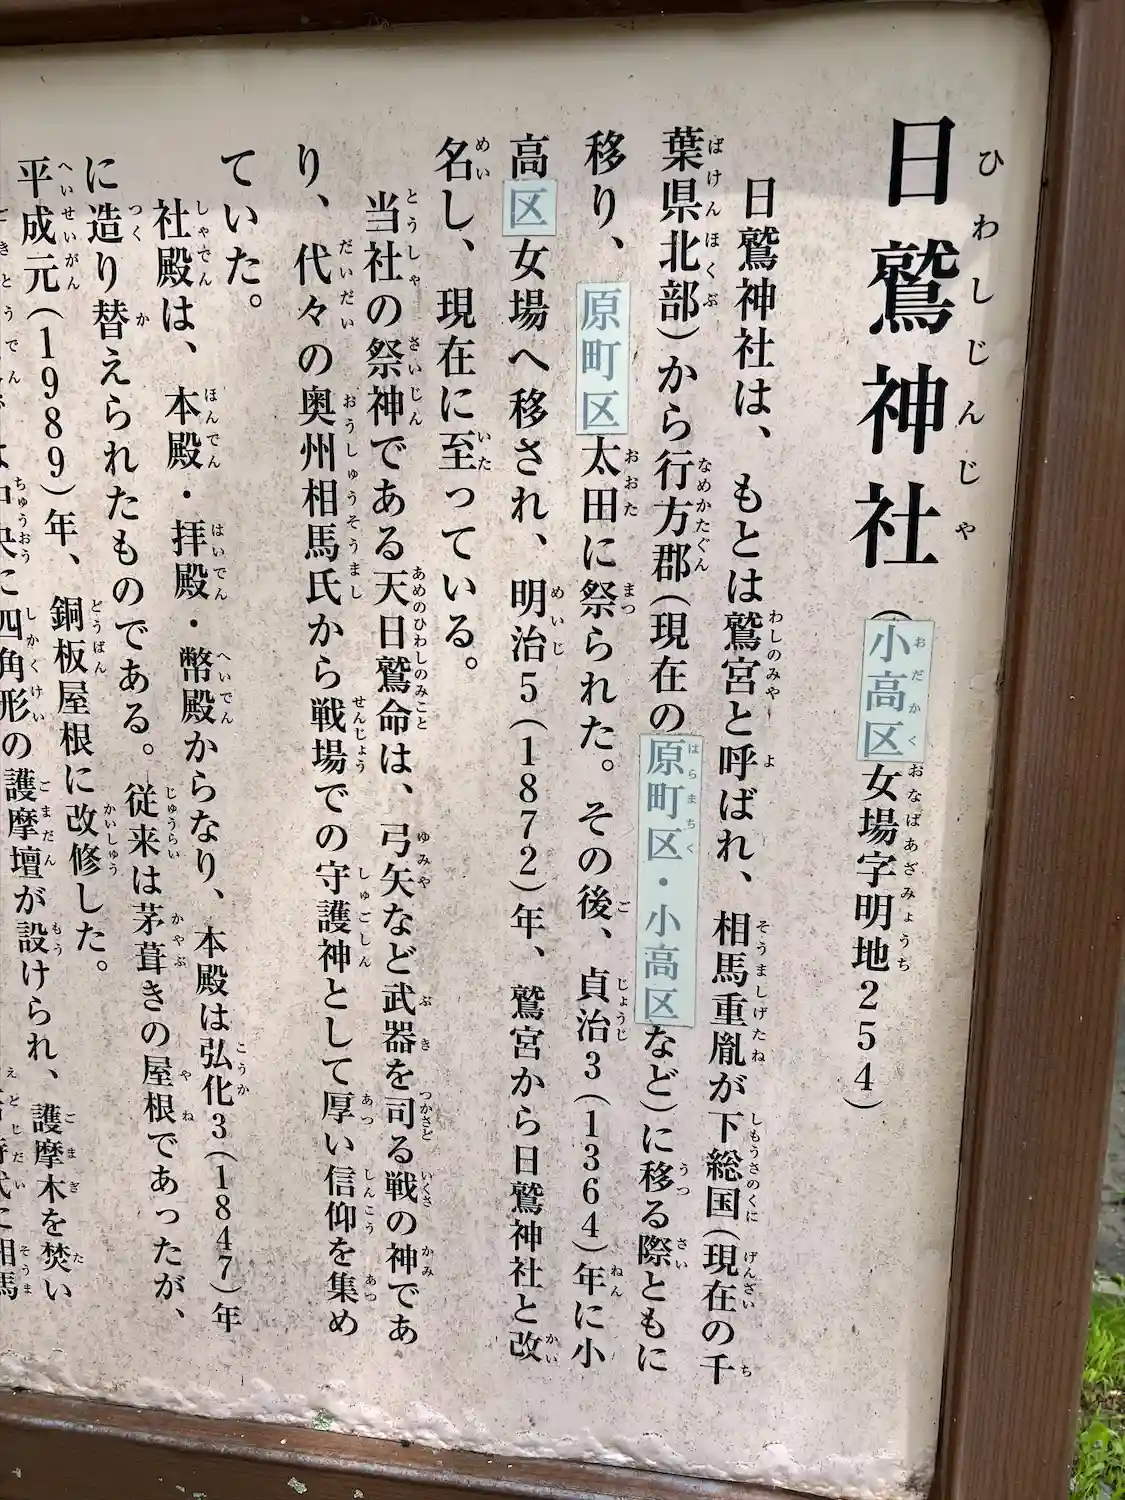 日鷲神社（小高区女場字明地254）
日鷲神社は、もとは鷲宮と呼ばれ、相馬重胤が下総国（現在の千
葉県北部）から行方郡（現在の原町区・小高区など）に移る際ともに
移り、原町区太田に祭られた。その後、貞治3（1364）年に小
高区女場へ移され、明治5（1872）年、鷲宮から日鷲神社と改
名し、現在に至っている。
当社の祭神である天日鷲命は、弓矢など武器を司る戦の神であ
り、代々の奥州相馬氏から戦場での守護神として厚い信仰を集め
ていた。
社殿は、本殿・拝殿・幣殿からなり、本殿は弘化3（1847）年
に造り替えられたものである。従来は茅葺きの屋根であったが、
平成元（1989）年、銅板屋根に改修した。
中央に四角形の護摩壇が設けられ、護摩木を焚い
相馬